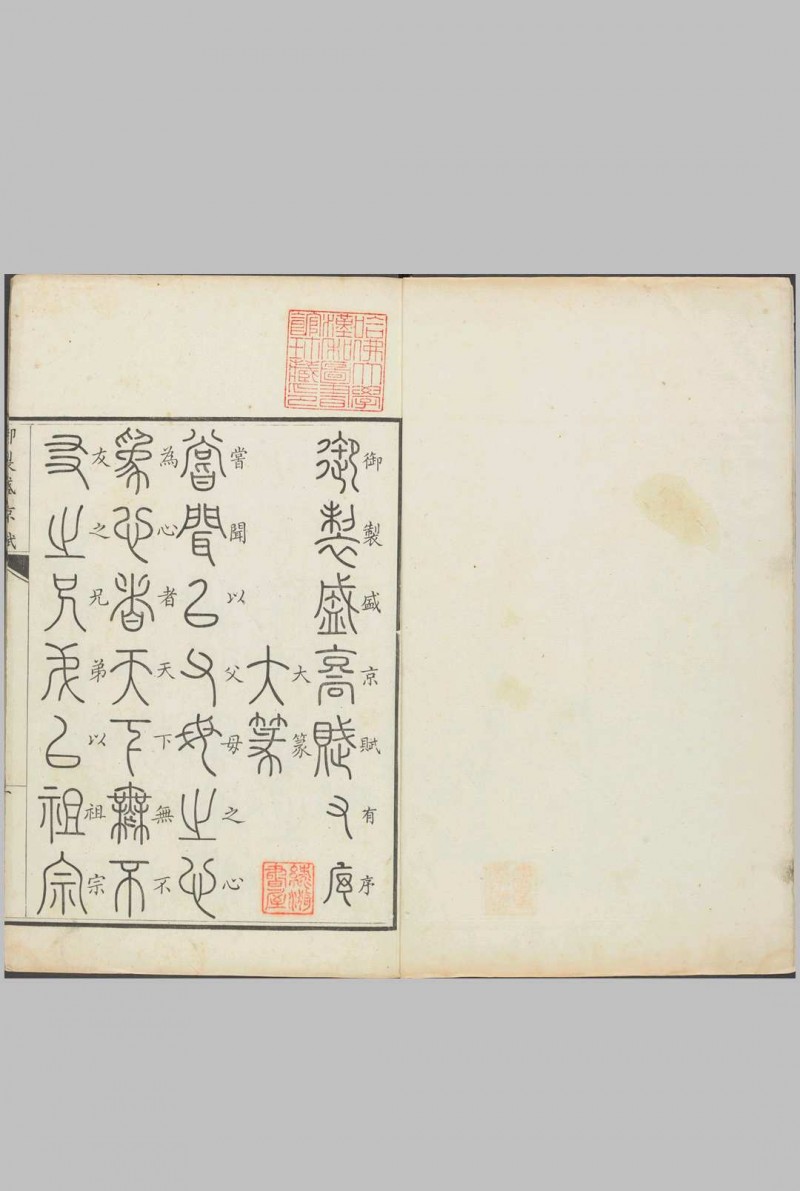 哈佛大學
漢和圖書
館珍藏印
御製盛京賦有序
御製盛京賦有序
大篆
大篆
嘗聞以父母之心
嘗聞以父母之心
為心者天下無不
為心者天下無不
友之兄弟以祖宗
友之兄弟以祖宗
御製盛京賦